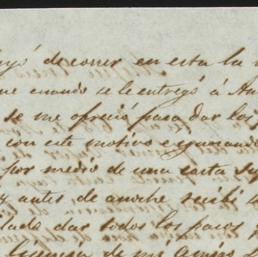 de correr en esta la
que cuando se le entregó á
se me ofreció para dar los
con este motivo
por medio de una carta
y antes de anoche recibí
dar todos los pasos y
de mi